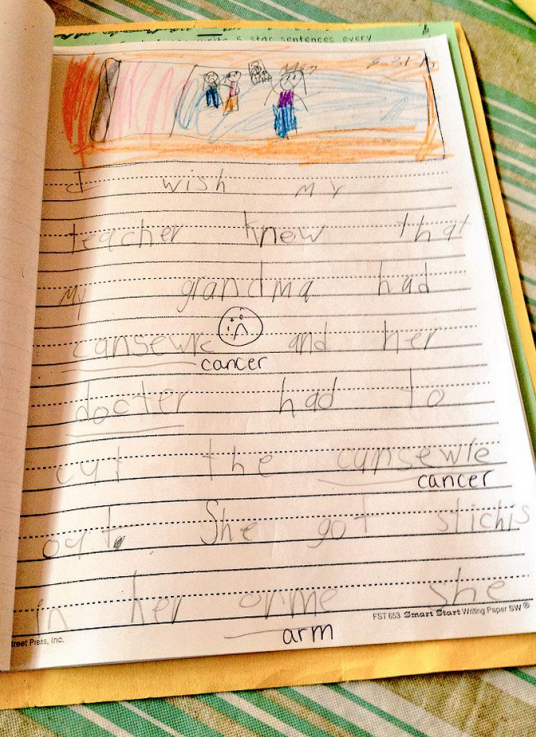 5 star sentences every
I wish my
teacher know that
my grandma had
cansewre and her
cancer
docter had to
cut the cunsewle
cancer
out. She got stichis
in her orme she
arm
FST 653 Smart Start Writing Paper SW®
reet Press, Inc.